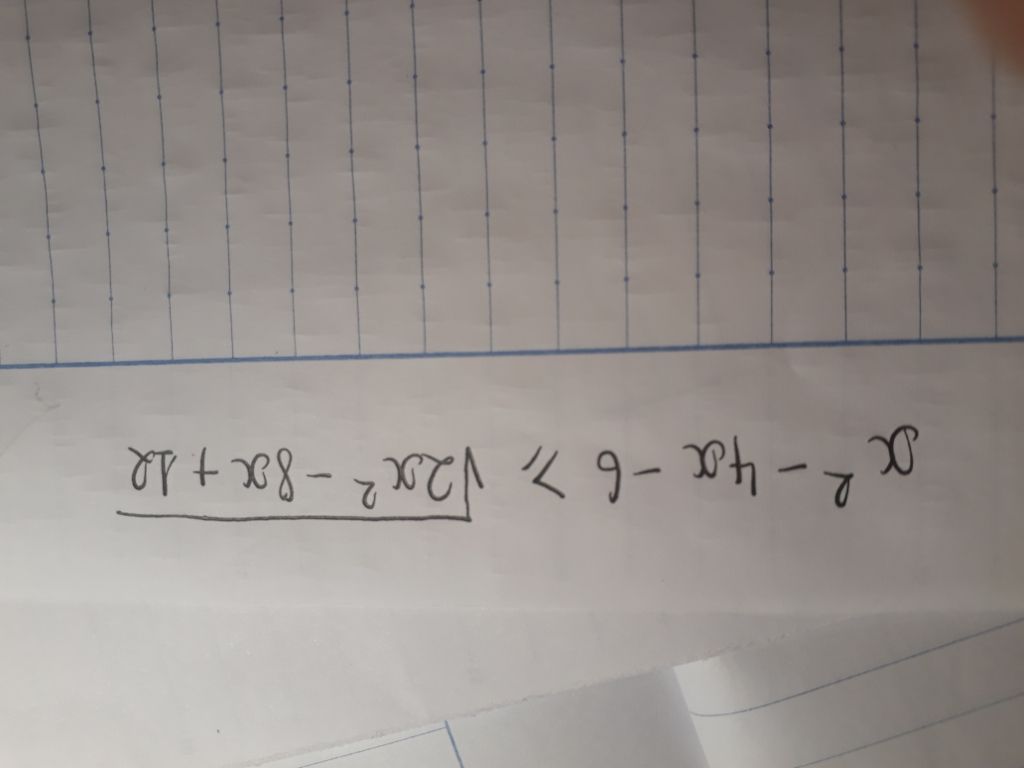 x² - 4x - 6 ⩾ √(2x² - 8x + 12)